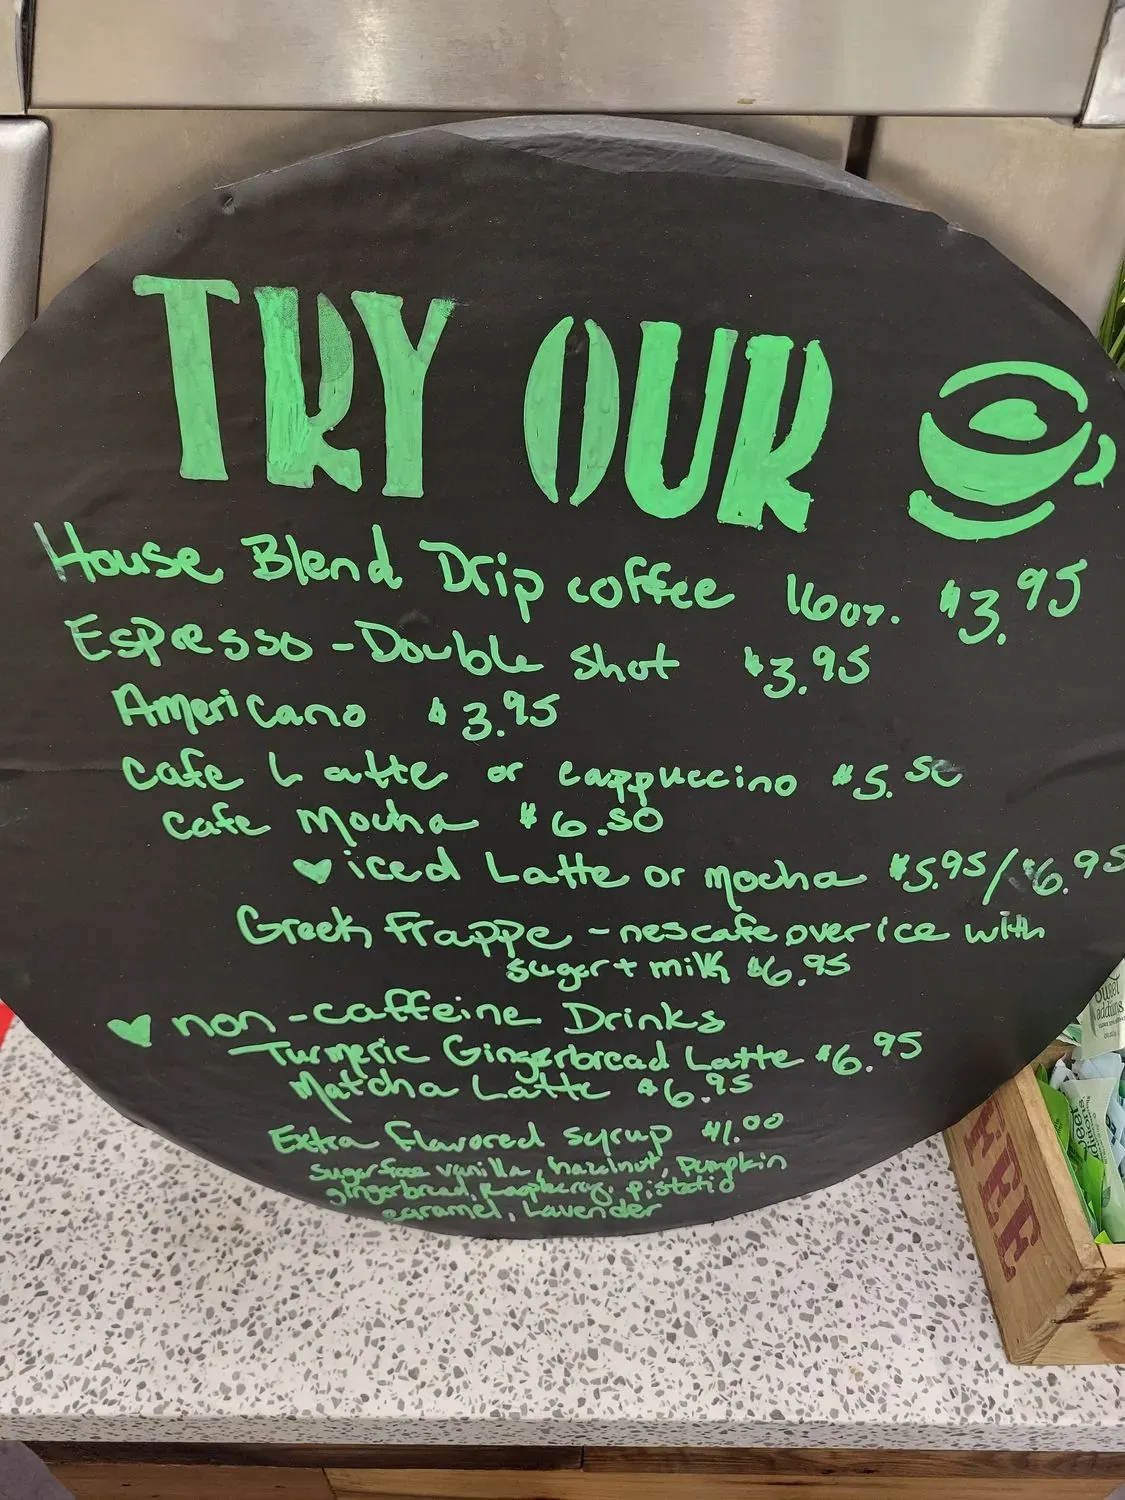 TRY OUR
House Blend Drip coffee 16oz. $3.95
Espresso - Double shot $3.95
Americano $3.95
Cafe Latte or cappuccino $5.50
Cafe Mocha $6.50
♥ iced Latte or mocha $5.95/$6.95
Greek Frappe - nescafe over ice with
sugar + milk $6.95
♥ non-caffeine Drinks
Turmeric Gingerbread Latte $6.95
Matcha Latte $6.95
Extra flavored syrup $1.00
sugar free vanilla, hazelnut, pumpkin
gingerbread, Raspberry, pistatio
caramel, Lavender
Sweet
additions